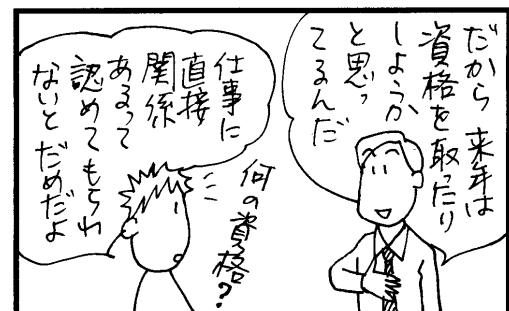 だから 来年は
資格を取ったり
しようか
と思っ
てるんだ
何の資格？
仕事に
直接
関係
あるって
認めてもらわ
ないとだめだよ